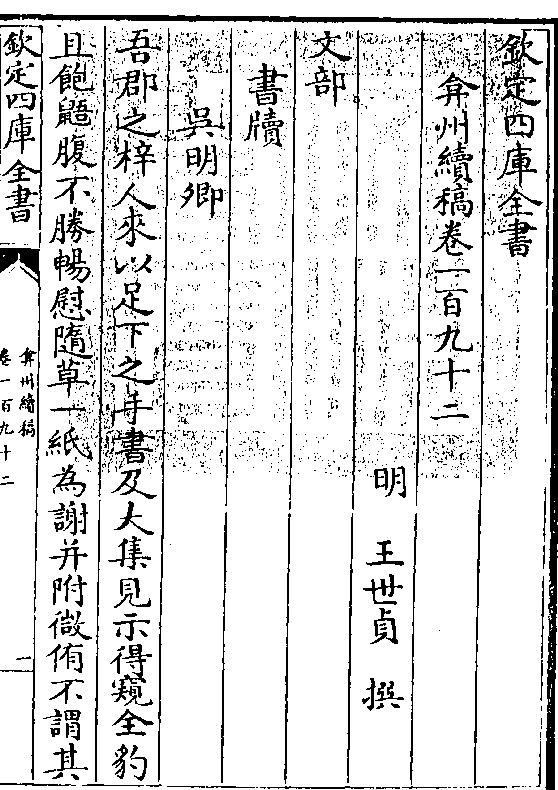 欽定四庫全書
弇州續稿卷一百九十二
明 王世貞 撰
文部
書牘
吳明卿
吾郡之梓人來以足下之手書及大集見示得窺全豹
且飽鼯腹不勝暢慰隨草一紙為謝并附微侑不謂其
欽定四庫全書
弇州續稿
卷一百九十二
一